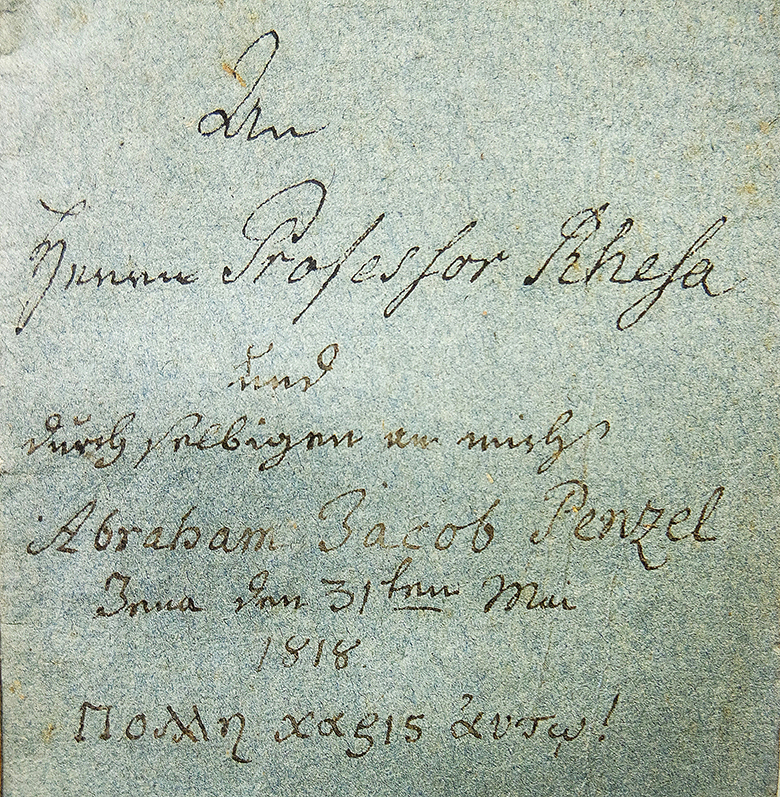 An
Herrn Professor Rhesa
und
durch selbigen an mich
Abraham Jacob Penzel
Jena den 31ten Mai
1818.
Πολλη χαρις ἀυτῳ!